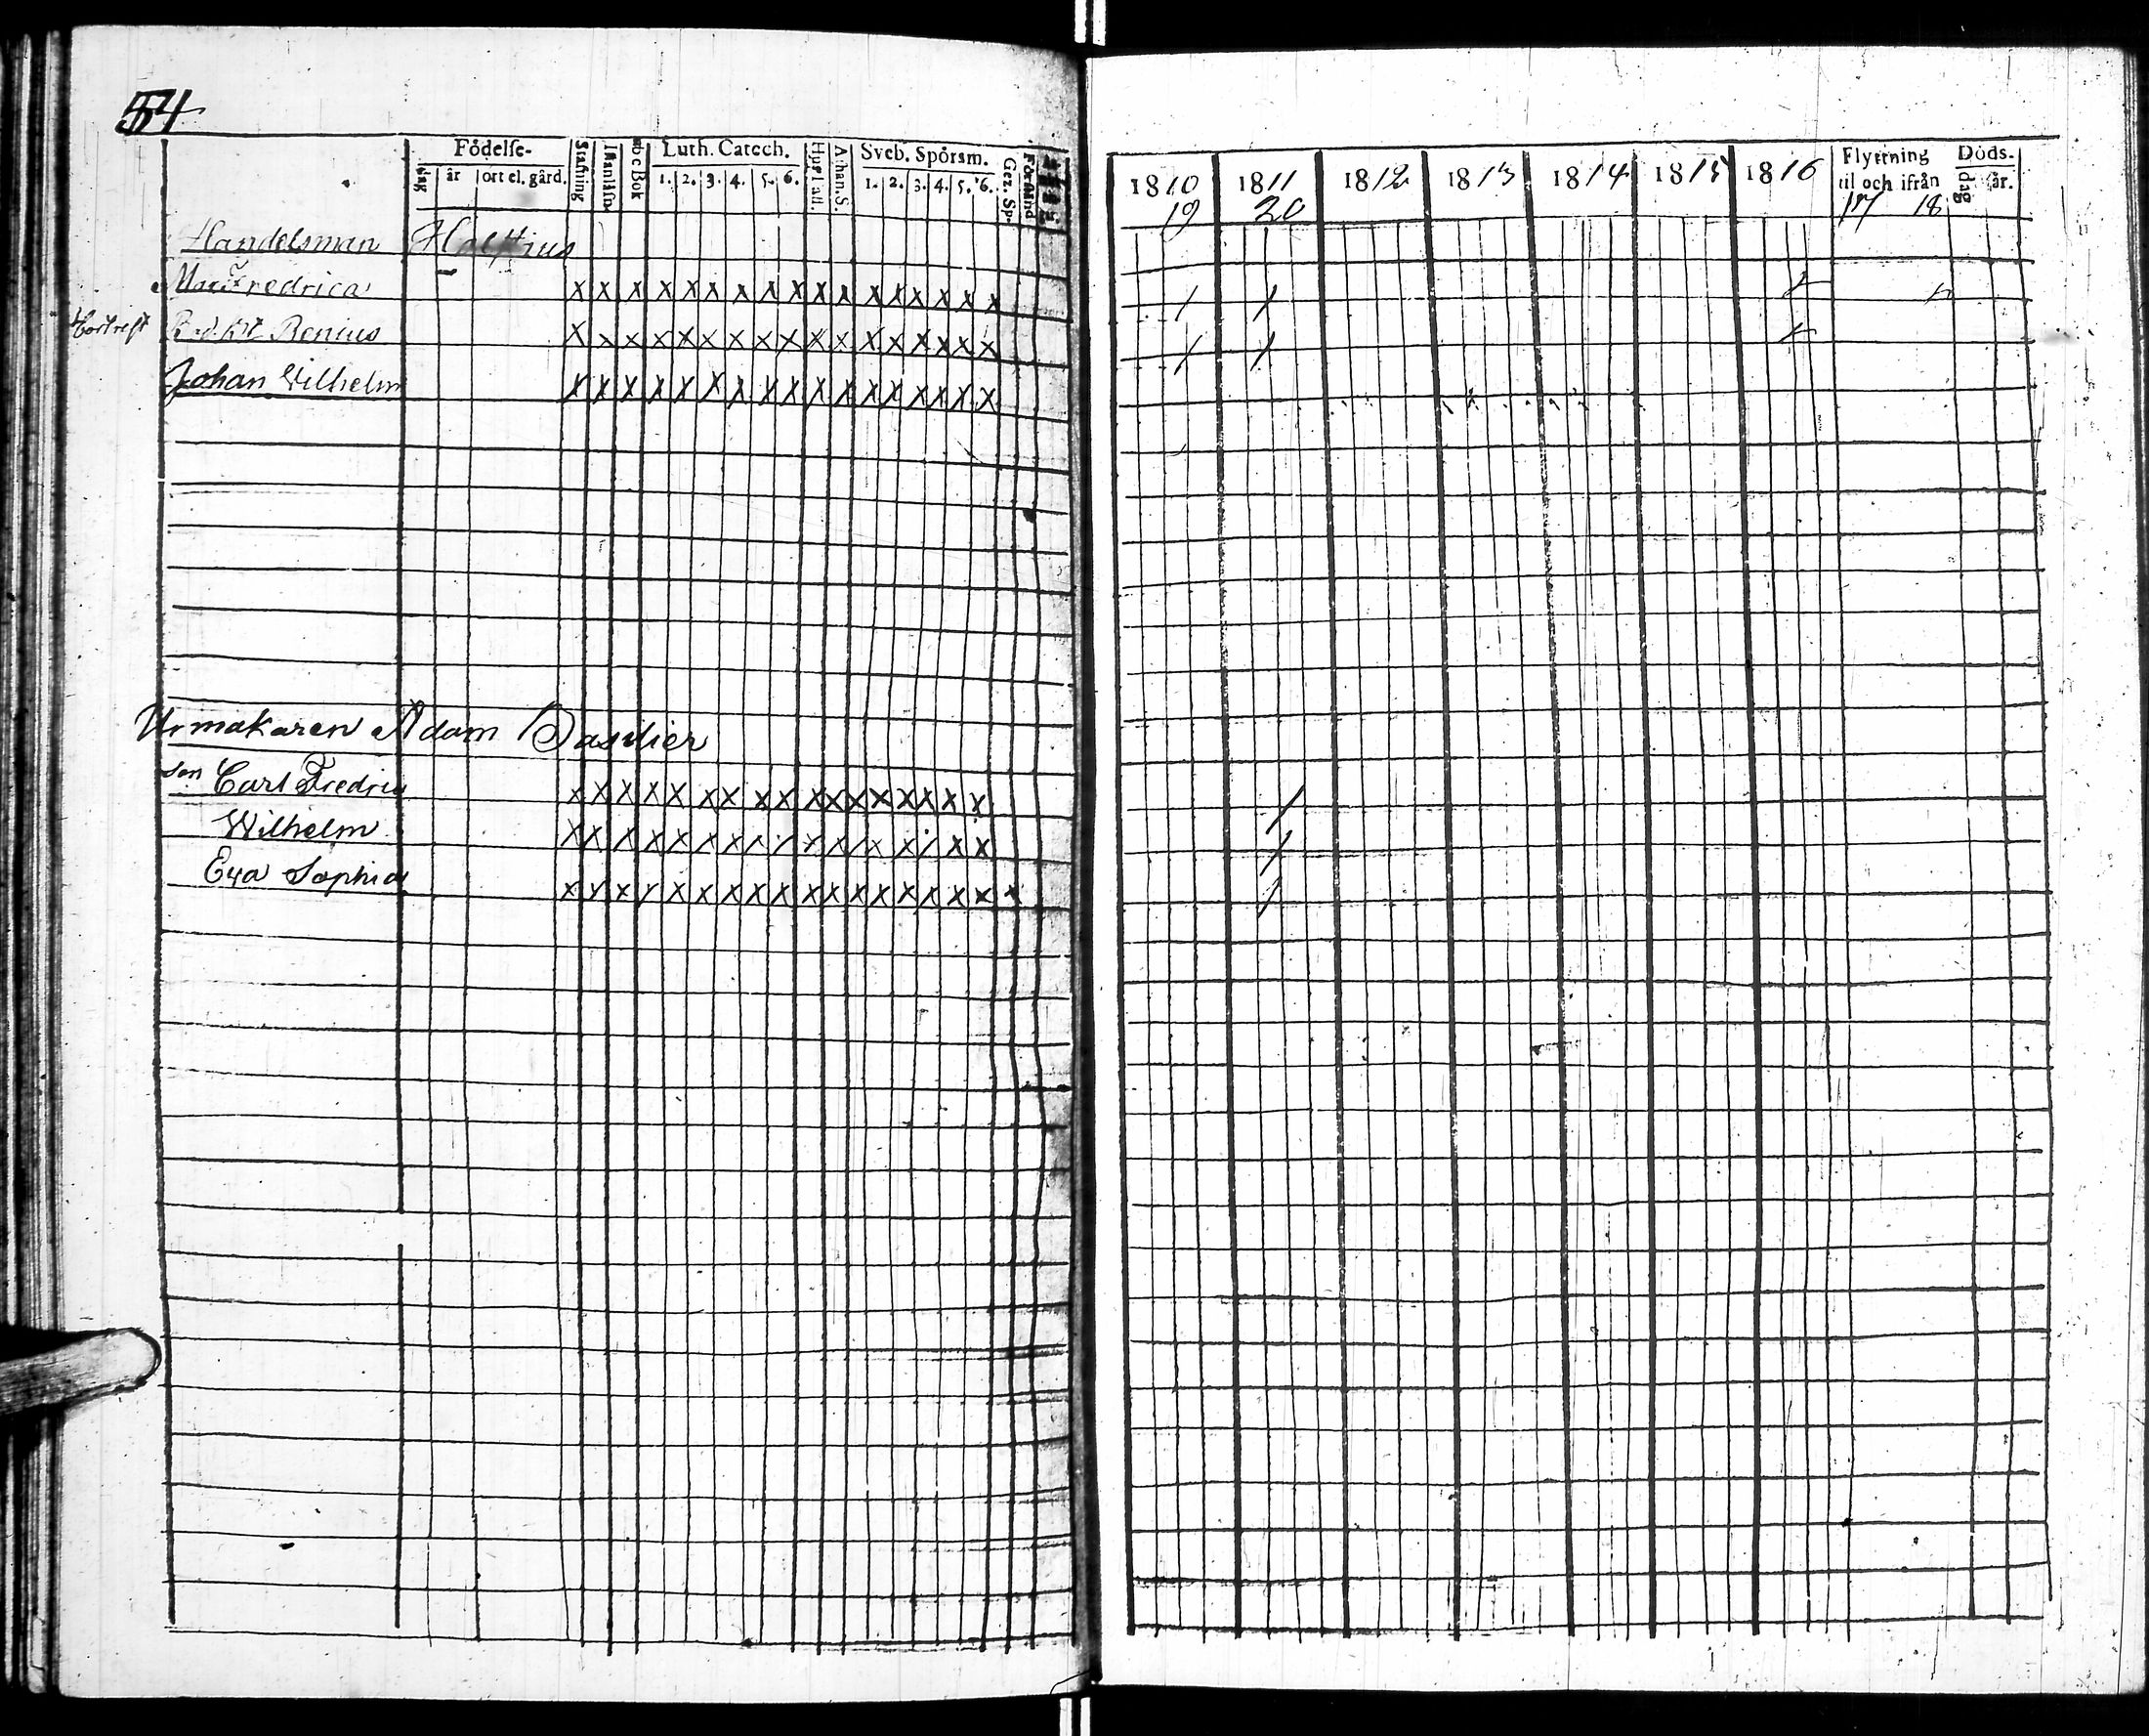 54
Födelse-
dag år ort el. gård.
Stafning
Innanläsn.
abc Bok
Luth. Catech.
1. 2. 3. 4. 5. 6.
Hustafl.
Athan. S.
Sveb. Spörsm.
1. 2. 3. 4. 5. 6.
Gez. Sp.
Förstånd
Handelsman
Fredrica
x x x x x x x x x x x x x x x x x
Benius
x x x x x x x x x x x x x x x x x
Johan Wilhelm
x x x x x x x x x x x x x x x x x
Urmakaren Adam Basilier
son Carl Fredric
x x x x x x x x x x x x x x x x x
Wilhelm
Eva Sophia
x x x x x x x x x x x x x x x x x x
1810 1811 1812 1813 1814 1815 1816
19 20
Flyttning
til och ifrån
17 18
Döds-
dag år.